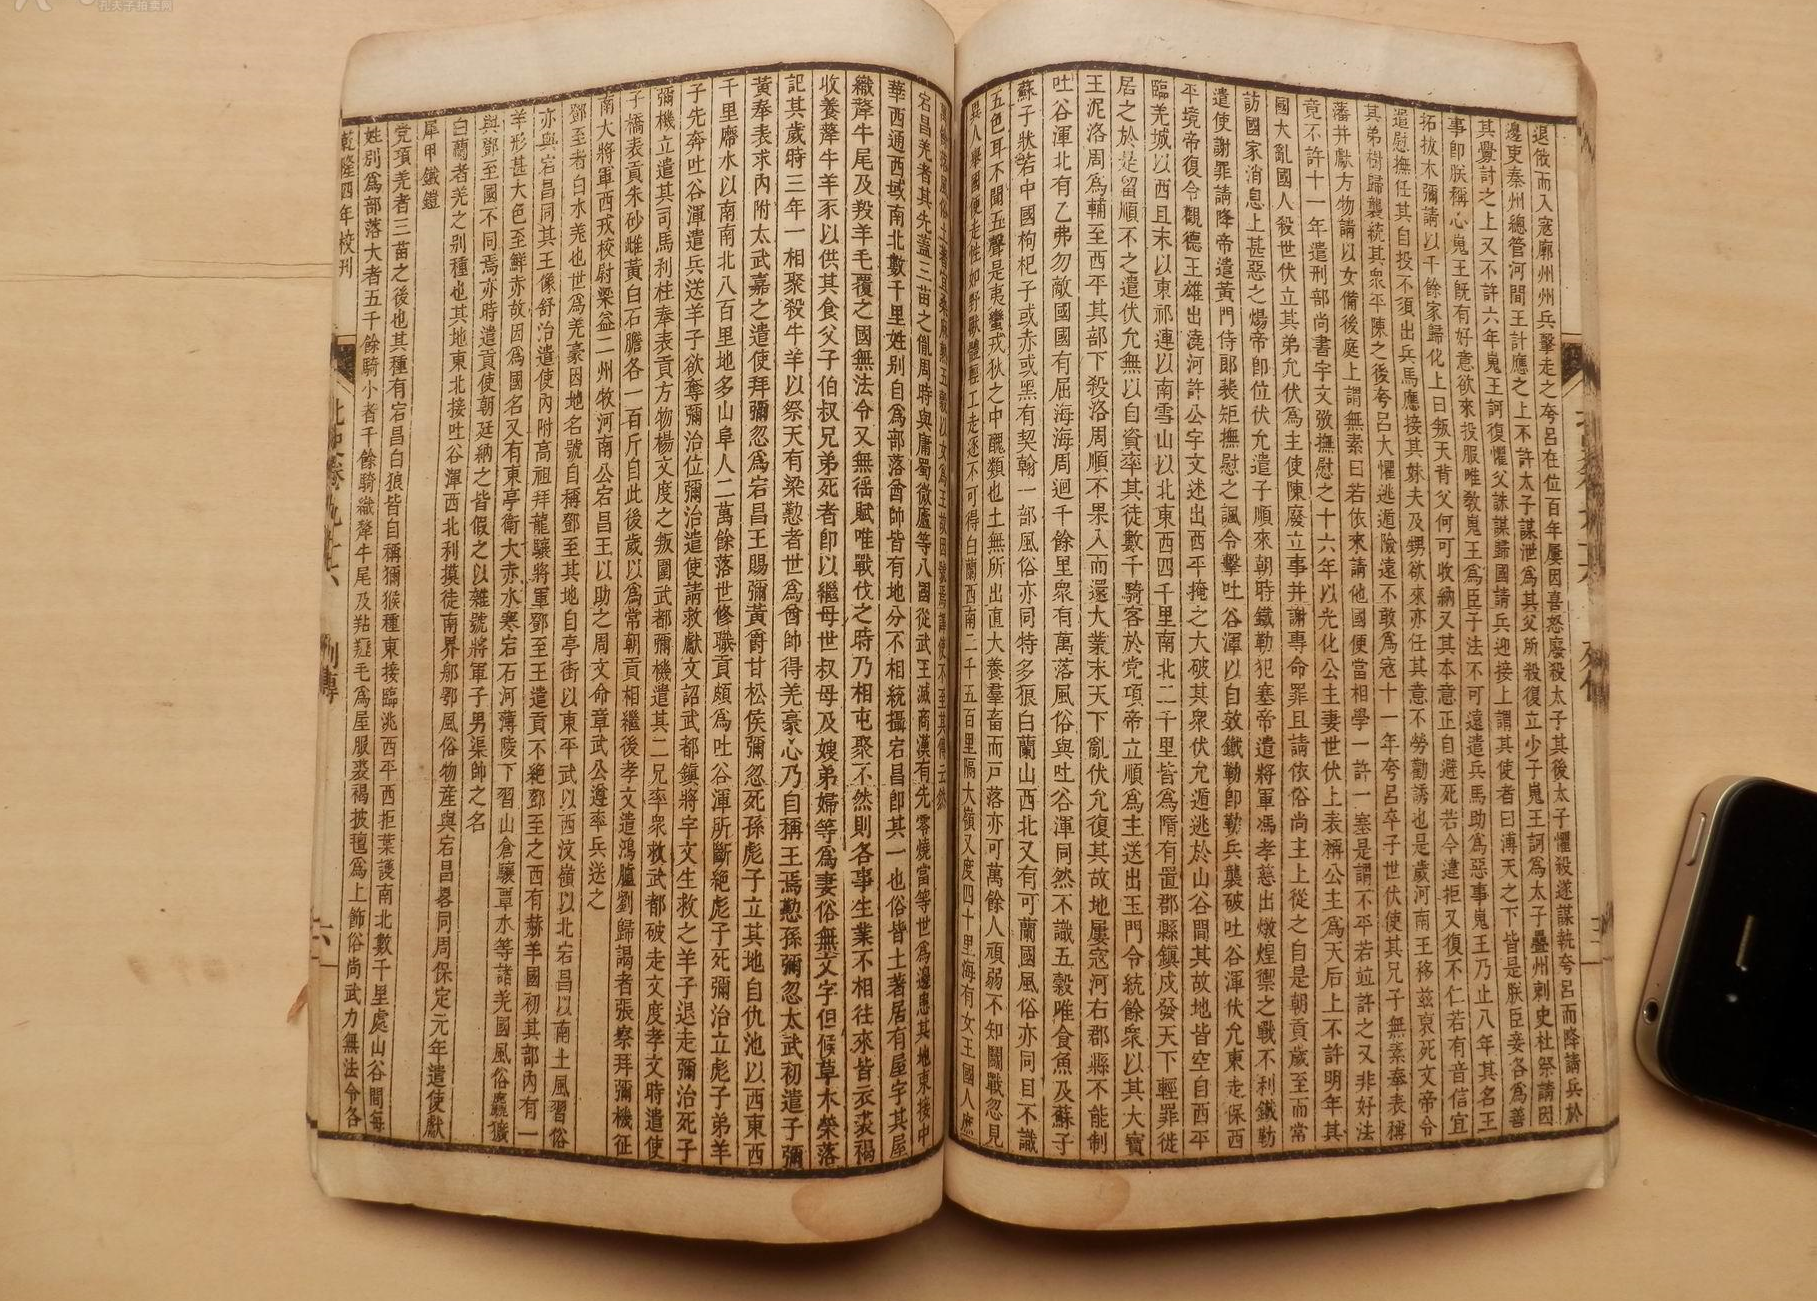 退俊而入寇廓州州兵擊走之夸呂在位百年屢因喜怒廢殺太子其後太子懼殺遂謀執夸呂而降請兵於
邊吏秦州總管河間王計應之上不許太子謀泄為其父所殺復立少子嵬王訶為太子疊州刺史杜祭請因
其釁討之上又不許六年嵬王訶復懼父誅謀歸國請兵迎接上謂其使者曰溥天之下皆是朕臣妾各為善
事即朕稱心嵬王既有好意欲來投服唯教嵬王為臣子法不可遠遣兵馬助為惡事嵬王乃止八年其名王
拓拔木彌請以千餘家歸化上曰叛天背父何可收納又其本意正自避死若今違拒又復不仁若有音信宜
遣慰撫任其自投不須出兵馬應接其妹夫及甥欲來亦任其意不勞勸誘也是歲河南王移茲裒死文帝令
其弟樹歸襲統其衆平陳之後夸呂大懼逃遁險遠不敢為寇十一年夸呂卒子世伏使其兄子無素奉表稱
藩并獻方物請以女備後庭上謂無素曰若依來請他國便當相學一許一塞是謂不平若竝許之又非好法
竟不許十一年遣刑部尚書宇文㢸撫慰之十六年以光化公主妻世伏上表稱公主為天后上不許明年其
國大亂國人殺世伏立其弟允伏為主使陳廢立事并謝專命罪且請依俗尚主上從之自是朝貢歲至而常
訪國家消息上甚惡之煬帝即位伏允遣子順來朝時鐵勒犯塞帝遣將軍馮孝慈出燉煌禦之戰不利鐵勒
遣使謝罪請降帝遣黃門侍郎裴矩撫慰之諷令擊吐谷渾以自效鐵勒即勒兵襲破吐谷渾伏允東走保西
平境帝復令觀德王雄出澆河許公宇文述出西平掩之大破其衆伏允遁逃於山谷間其故地皆空自西平
臨羌城以西且末以東祁連以南雪山以北東西四千里南北二千里皆為隋有置郡縣鎮戍發天下輕罪徙
居之於是留順不之遣伏允無以自資率其徒數千騎客於党項帝立順為主送出玉門令統餘衆以其大寶
王泥洛周為輔至西平其部下殺洛周順不果入而還大業末天下亂伏允復其故地屢寇河右郡縣不能制
吐谷渾北有乙弗勿敵國國有屈海海周迴千餘里衆有萬落風俗與吐谷渾同然不識五穀唯食魚及蘇子
蘇子狀若中國枸杞子或赤或黑有契翰一部風俗亦同特多狼白蘭山西北又有可蘭國風俗亦同目不識
五色耳不聞五聲是夷蠻戎狄之中醜類也土無所出直大養羣畜而戸落亦可萬餘人頑弱不知鬬戰忽見
異人舉國便走性如野獸體輕工走逐不可得白蘭西南二千五百里隔大嶺又度四十里海有女王國人庶
萬餘落風俗土著宜桑麻熟五穀以女為王故因號焉譯使不至其傳云然
宕昌羌者其先蓋三苗之胤周時與庸蜀微廬等八國從武王滅商漢有先零燒當等世為邊患其地東接中
華西通西域南北數千里姓别自為部落酋帥皆有地分不相統攝宕昌即其一也俗皆土著居有屋宇其屋
織犛牛尾及羖羊毛覆之國無法令又無徭賦唯戰伐之時乃相屯聚不然則各事生業不相往來皆衣裘褐
收養犛牛羊豕以供其食父子伯叔兄弟死者即以繼母世叔母及嫂弟婦等為妻俗無文字但候草木榮落
記其歲時三年一相聚殺牛羊以祭天有梁懃者世為酋帥得羌豪心乃自稱王焉懃孫彌忽太武初遣子彌
黃奉表求內附太武嘉之遣使拜彌忽為宕昌王賜彌黃爵甘松侯彌忽死孫彪子立其地自仇池以西東西
千里廗水以南南北八百里地多山阜人二萬餘落世修職貢頗為吐谷渾所斷絕彪子死彌治立彪子弟羊
子先奔吐谷渾遣兵送羊子欲奪彌治位彌治遣使請救獻文詔武都鎮將宇文生救之羊子退走彌治死子
彌機立遣其司馬利柱奉表貢方物楊文度之叛圍武都彌機遣其二兄率衆救武都破走文度孝文時遣使
子橋表貢朱砂雌黃白石膽各一百斤自此後歲以為常朝貢相繼後孝文遣鴻臚劉歸謁者張察拜彌機征
南大將軍西戎校尉梁益二州牧河南公宕昌王以助之周文命章武公遵率兵送之
鄧至者白水羌也世為羌豪因地名號自稱鄧至其地自亭街以東平武以西汶嶺以北宕昌以南土風習俗
亦與宕昌同其王像舒治遣使內附高祖拜龍驤將軍鄧至王遣貢不絕鄧至之西有赫羊國初其部內有一
羊形甚大色至鮮赤故因為國名又有東亭衛大赤水寒宕石河薄陵下習山倉驤覃水等諸羌國風俗麤獷
與鄧至國不同焉亦時遣貢使朝廷納之皆假之以雜號將軍子男渠帥之名
白蘭者羌之别種也其地東北接吐谷渾西北利摸徒南界郍鄂風俗物産與宕昌畧同周保定元年遣使獻
犀甲鐵鎧
党項羌者三苗之後也其種有宕昌白狼皆自稱獼猴種東接臨洮西平西拒葉護南北數千里處山谷間每
姓别為部落大者五千餘騎小者千餘騎織犛牛尾及羖䍽毛為屋服裘褐披氊為上飾俗尚武力無法令各
乾隆四年校刊
北史卷九十六
列傳
六